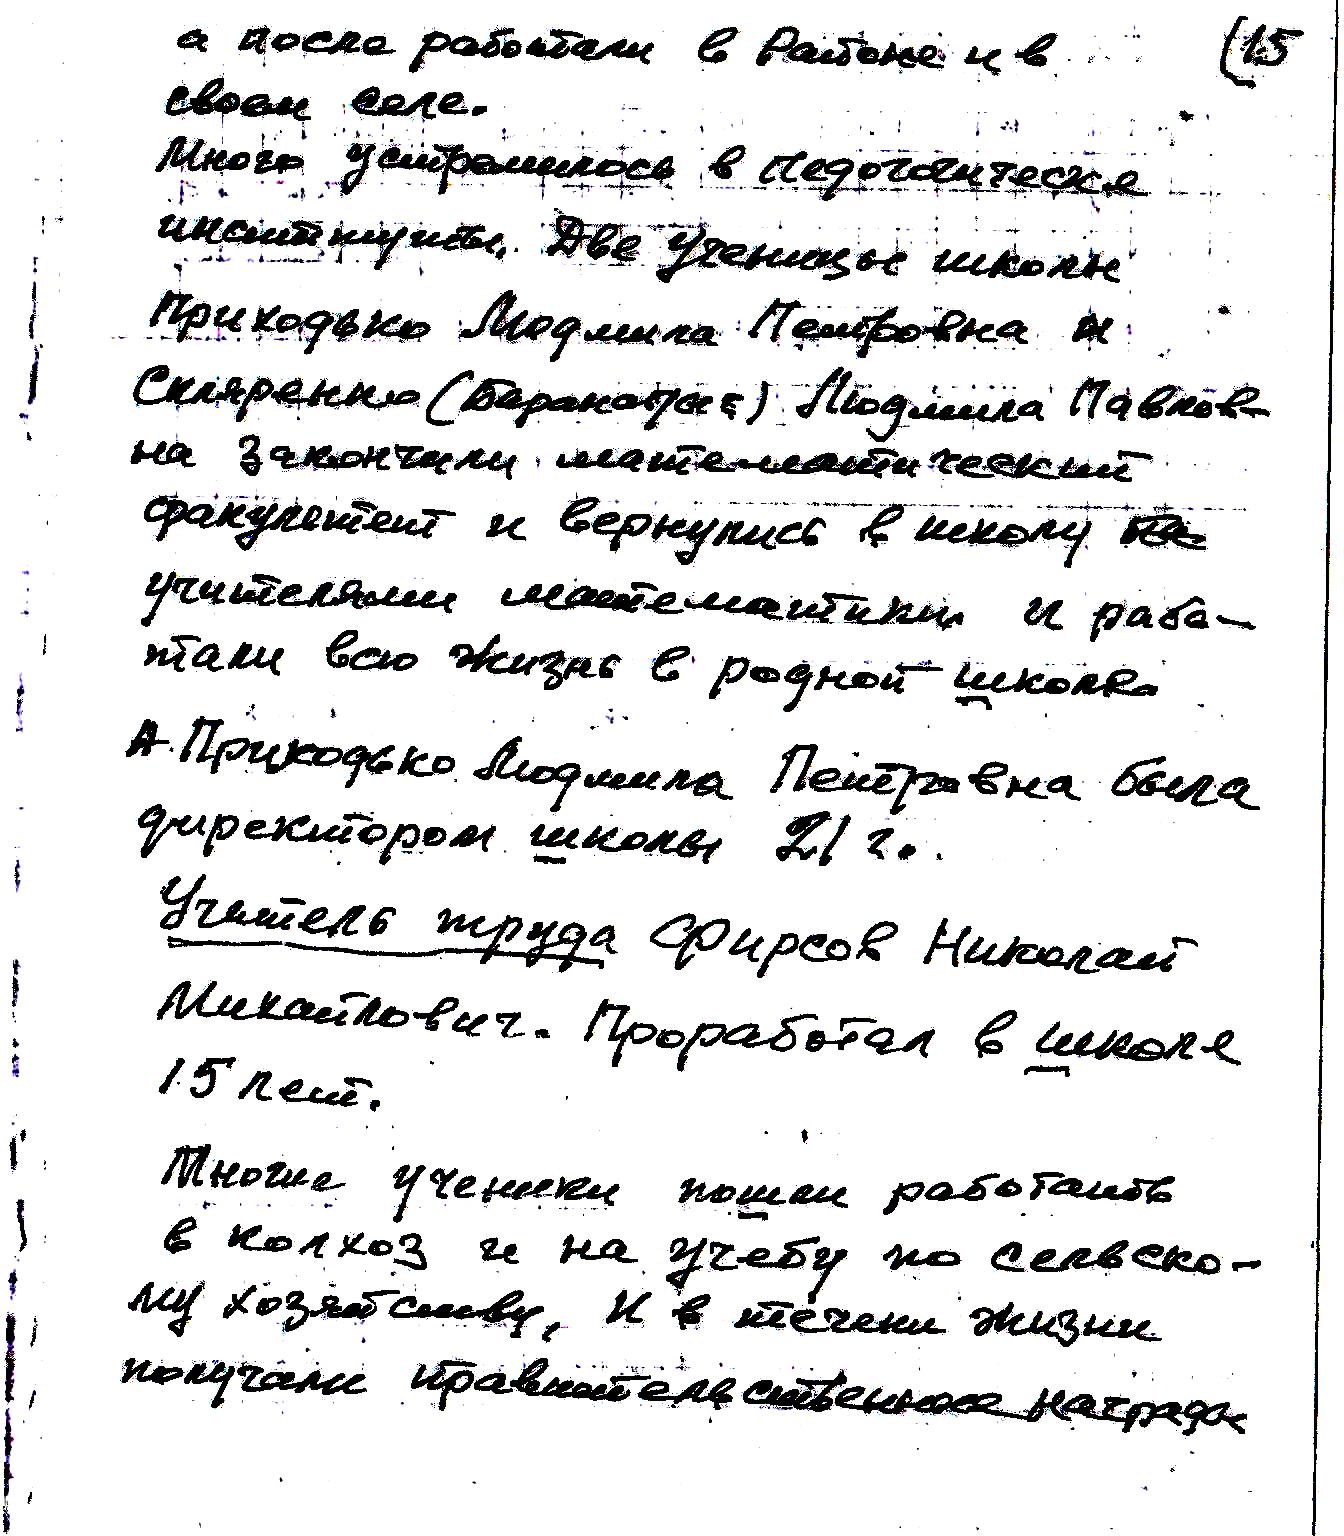 а после работали в Районе и в (15
своем селе.
Много устремилось в педогогическе
институты. Две ученицы школы
Приходько Людмила Петровна и
Скляренко ( Людмила Павлов-
на закончили математический
факультет и вернулись в школу
учителями математики и рабо-
тали всю жизнь в родной школе.
А Приходько Людмила Петровна была
директором школы 21 г.
Учитель труда Фирсов Николай
Михайлович. Проработал в школе
15 лет.
Многие ученики пошли работать
в колхоз и на учебу по сельско-
му хозяйству, И в течени жизни
получали правительственные награды